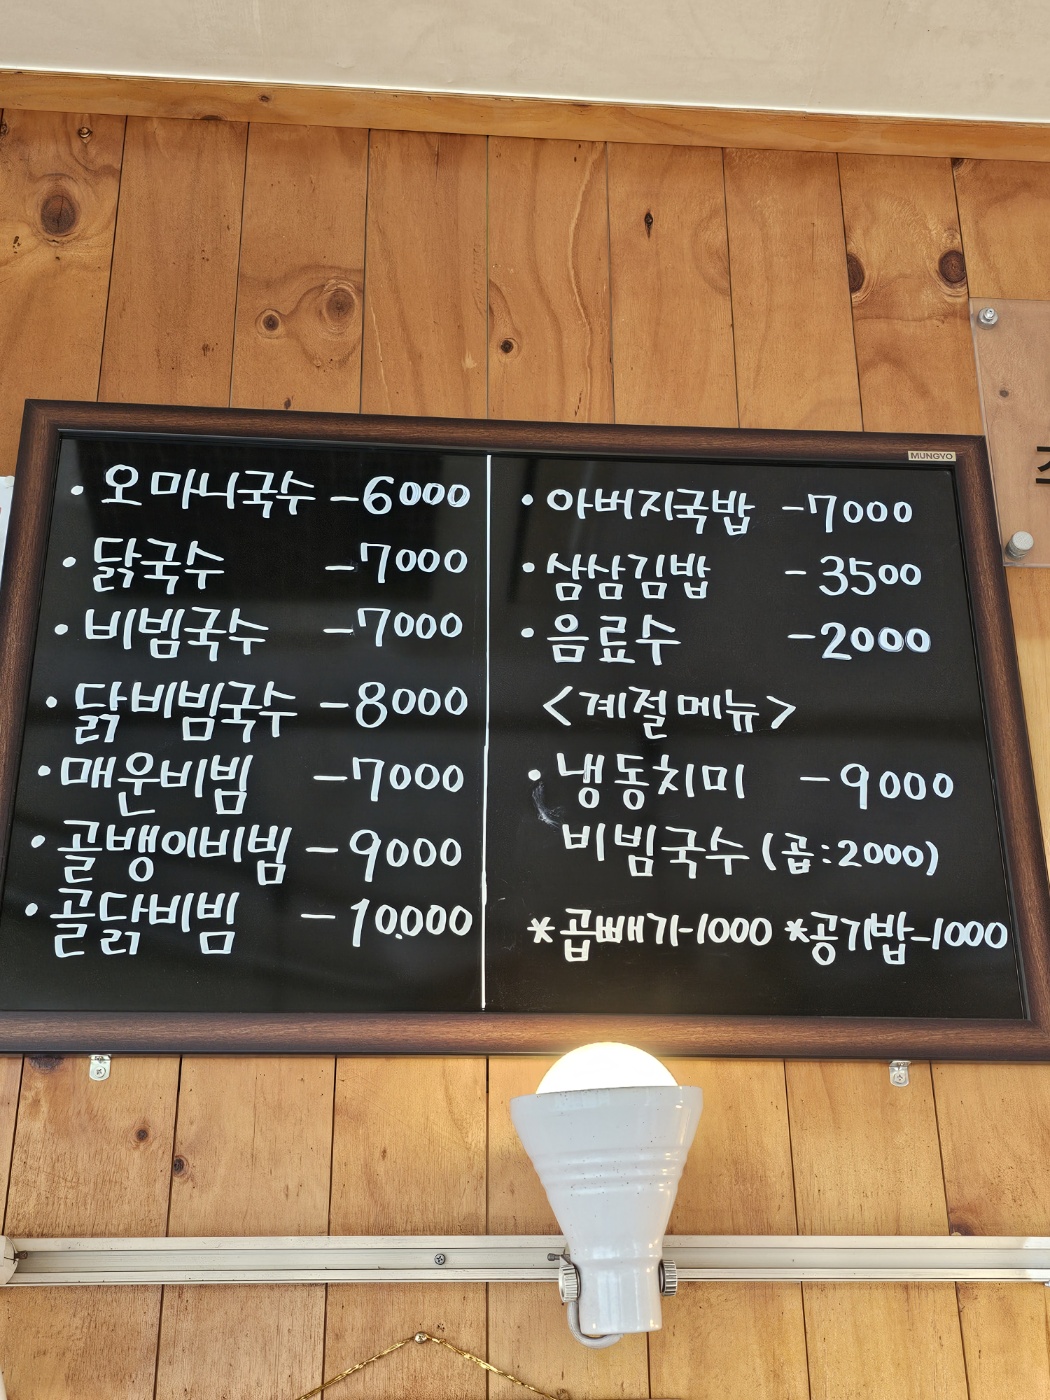 MUNGYO
• 오마니국수 -6000
• 닭국수 -7000
• 비빔국수 -7000
• 닭비빔국수 -8000
• 매운비빔 -7000
• 골뱅이비빔 -9000
• 골닭비빔 -10.000
• 아버지국밥 -7000
• 삼삼김밥 -3500
• 음료수 -2000
<계절메뉴>
• 냉동치미 -9000
비빔국수 (곱:2000)
*곱빼기-1000 *공기밥-1000